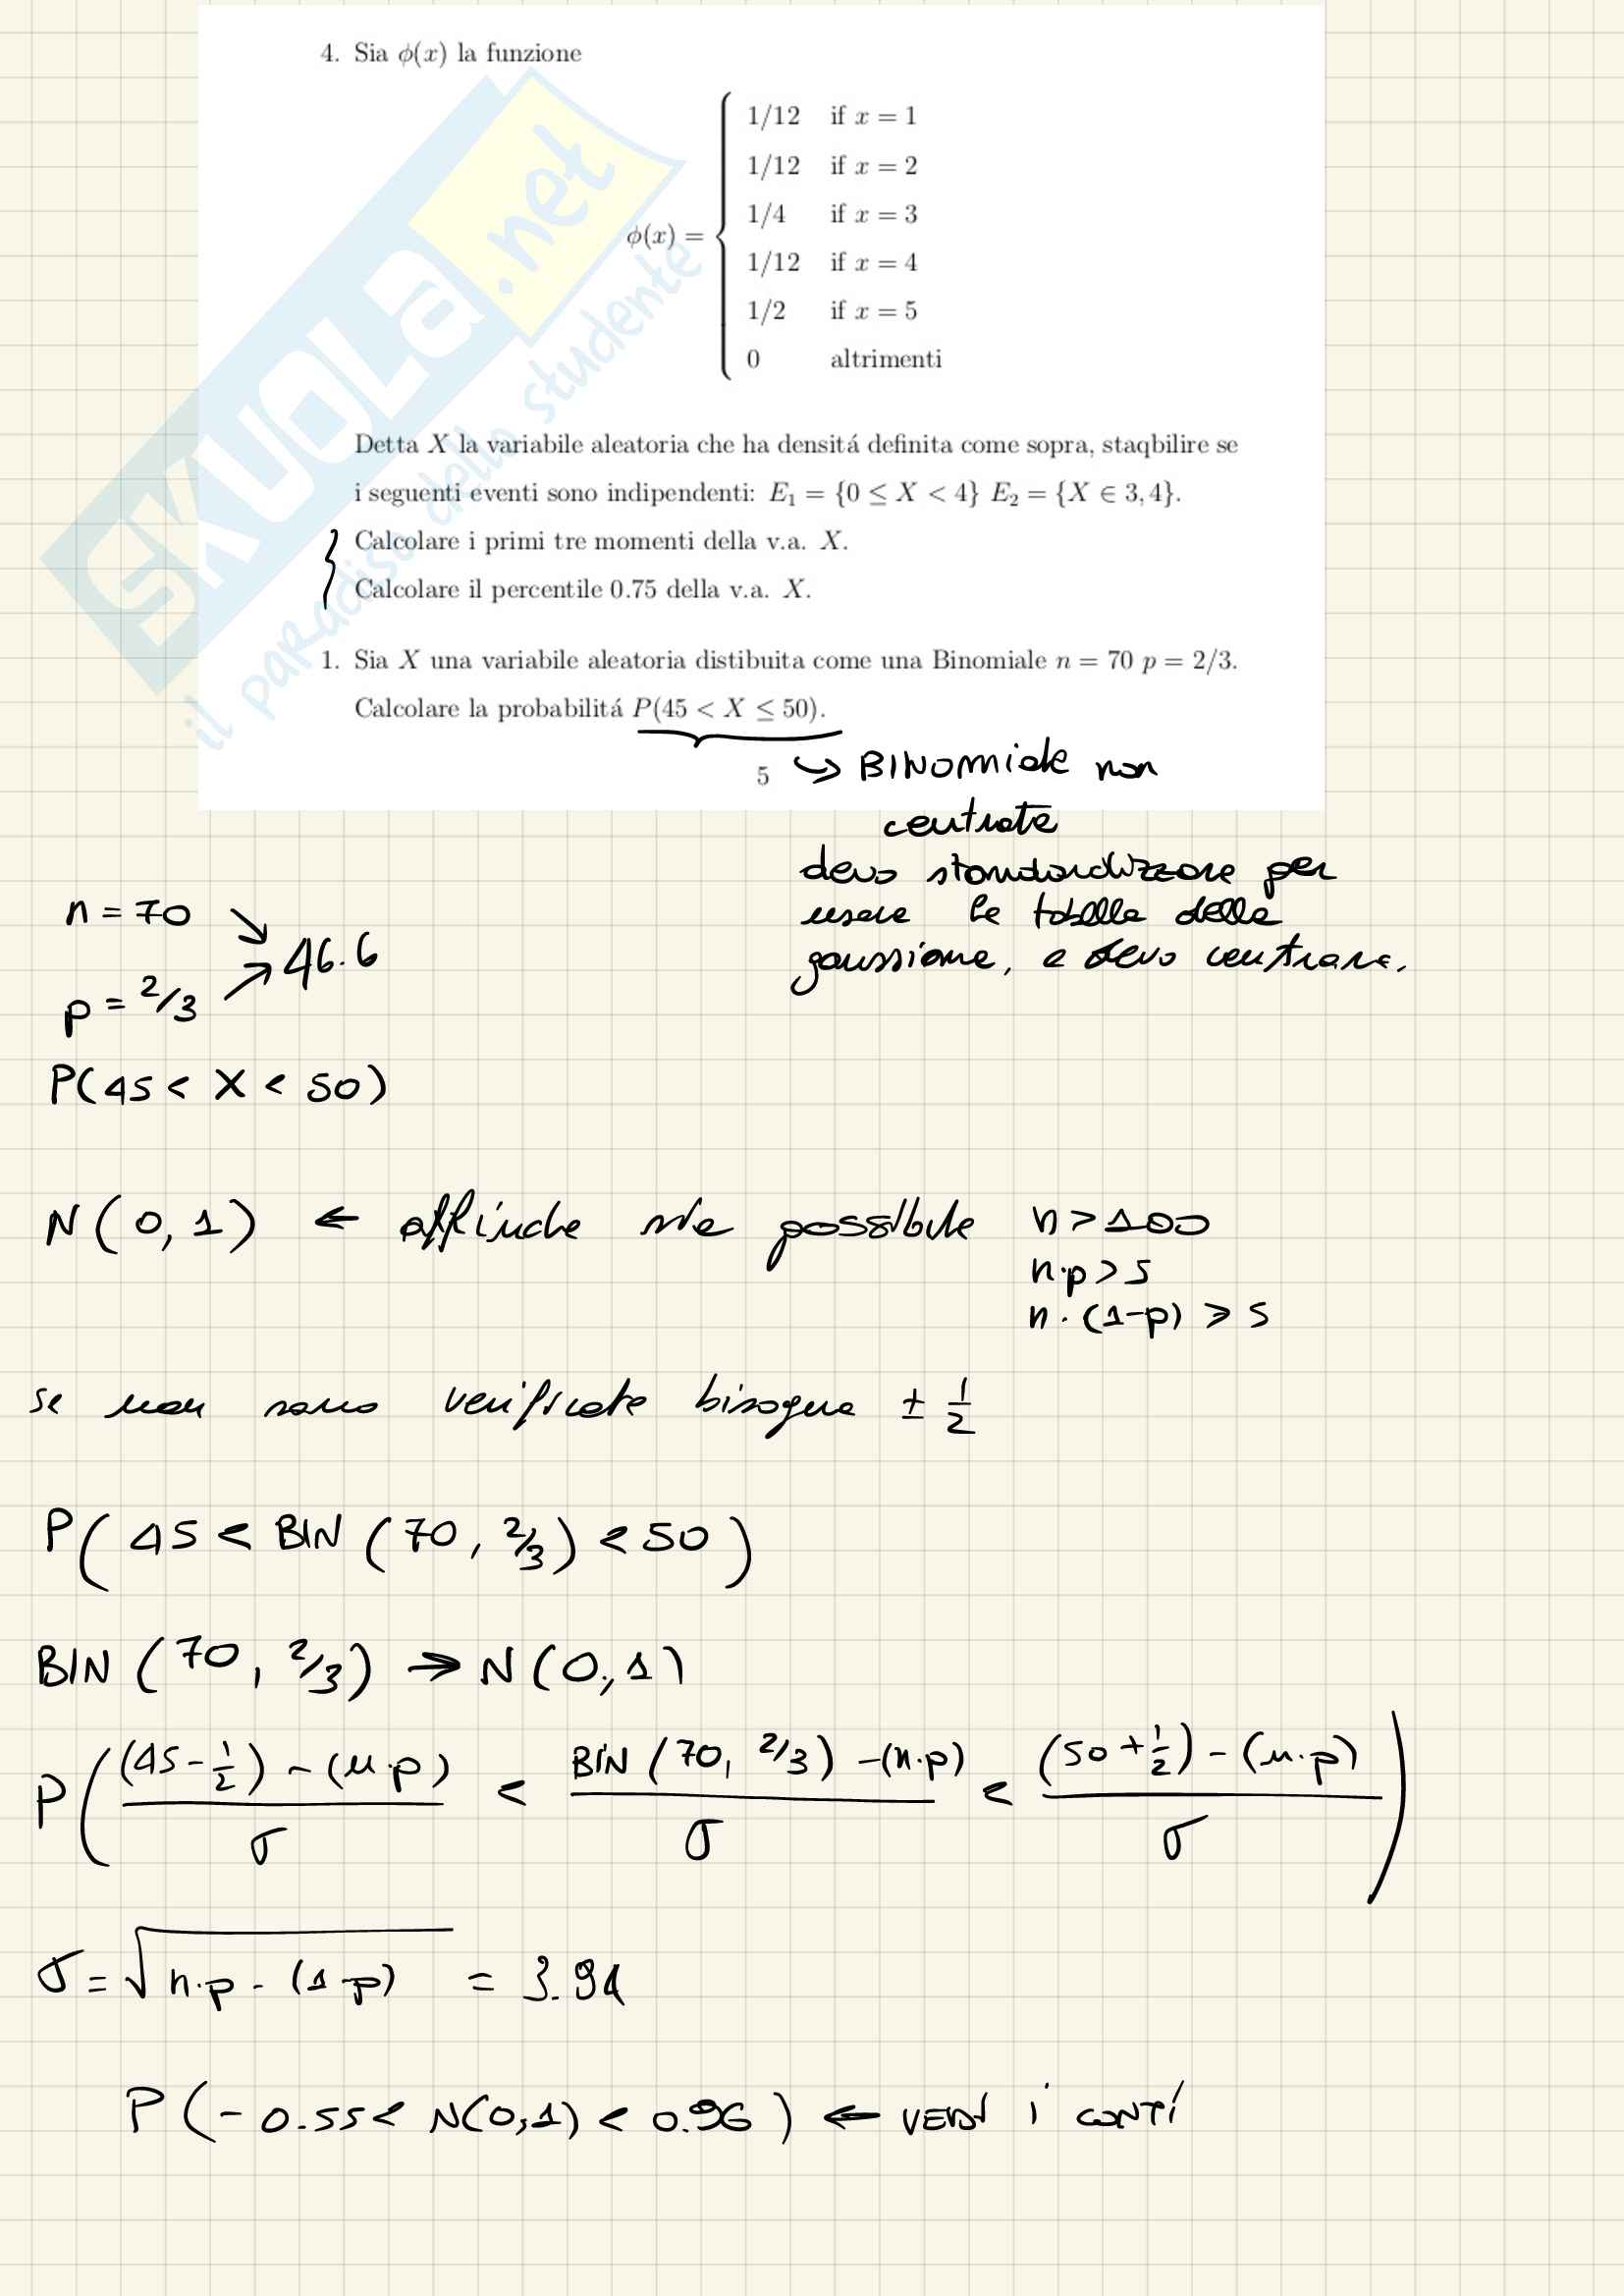 4. Sia ϕ(x) la funzione
ϕ(x) =
1/12 if x = 1
1/12 if x = 2
1/4 if x = 3
1/12 if x = 4
1/2 if x = 5
0 altrimenti
Detta X la variabile aleatoria che ha densitá definita come sopra, staqbilire se
i seguenti eventi sono indipendenti: E₁ = {0 ≤ X < 4} E₂ = {X ∈ 3, 4}.
Calcolare i primi tre momenti della v.a. X.
Calcolare il percentile 0.75 della v.a. X.
1. Sia X una variabile aleatoria distibuita come una Binomiale n = 70 p = 2/3.
Calcolare la probabilitá P(45 < X ≤ 50).
5
SKUOLA.net
il paradiso dello studente
↪ BINOMIALE non
centrata
devo standardizzare per
usare le tabelle della
gaussiana, e devo centrare.
n = 70
46.6
p = 2/3
P(45 < X < 50)
N(0,1) ← affinche sia possibile n > 100
n·p > 5
n·(1-p) ≥ 5
se non sono verificate bisogna ± 1/2
P(45 < BIN(70, 2/3) < 50)
BIN(70, 2/3) → N(0,1)
P( ((45 - 1/2) - (n·p))/σ < (BIN(70, 2/3) - (n·p))/σ < ((50 + 1/2) - (n·p))/σ )
σ = √(n·p - (1-p)) = 3.94
P(-0.55 < N(0,1) < 0.96) ← VEDI i CONTI